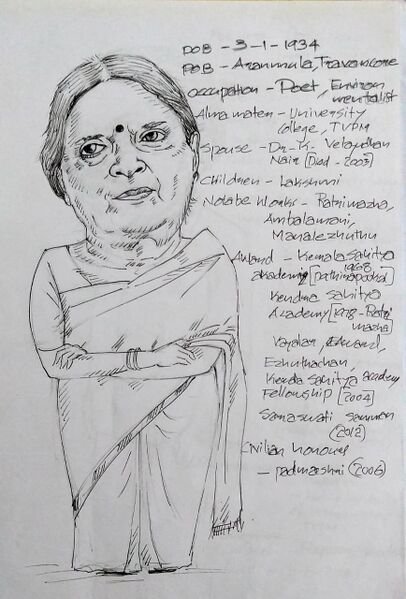 DOB - 3-1-1934
POB - Aranmula, Travancore
Occupation - Poet, Environ
mentalist
Alma mater - University
College, TVPM
Spouse - Dr. K. Velayudhan
Nair [Died - 2003]
Children - Lakshmi
Notable Works - Rathrimazha,
Ambalamani,
Manalezhuthu
Award - Kerala Sahitya
1968
akademy [pathirapookal]
Kendra Sahitya
Academy [1978 - Ratri
mazha]
Vayalar, Award,
Ezhuthachan,
Kerala Sahitya academy
Fellowship [2004]
Saraswati samman
(2012)
Civilian honour
- padmashri (2006)